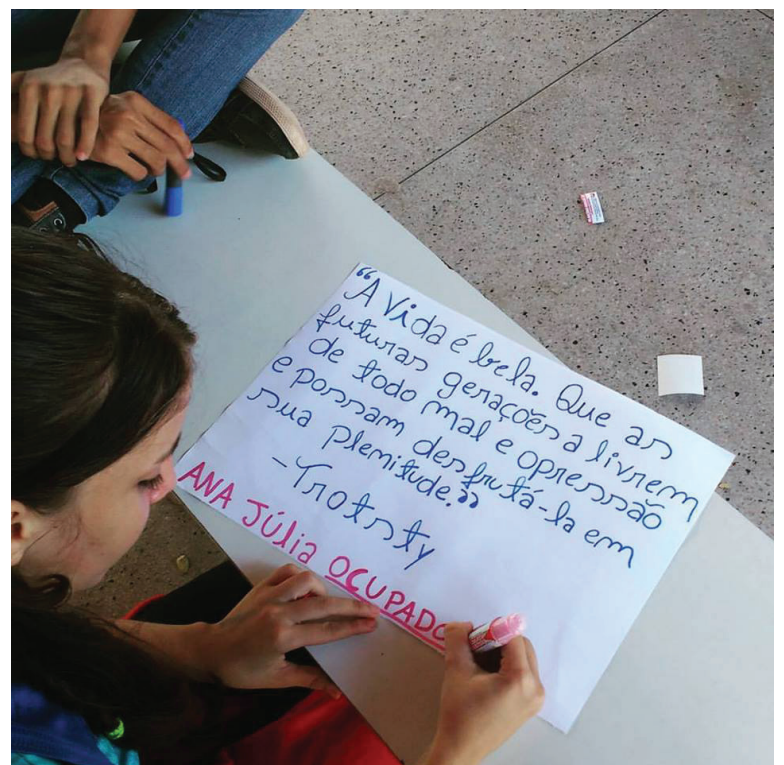 “A Vida é bela. Que as
futuras gerações a livrem
de todo mal e opressão
e possam desfrutá-la em
sua plenitude.”
-Trotsty
ANA JÚlia OCUPADO